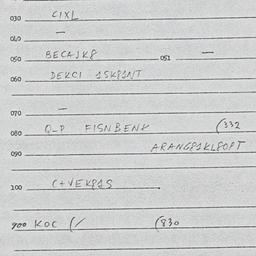 030 CIXL
040 —
050 BECAJK8 051 —
060 DEKCI 1SK81NT
070 —
080 Q-P FISNBENK (332
090 ARANG81KL80PT
100 C+VEK81S
900 KOC (/ (830